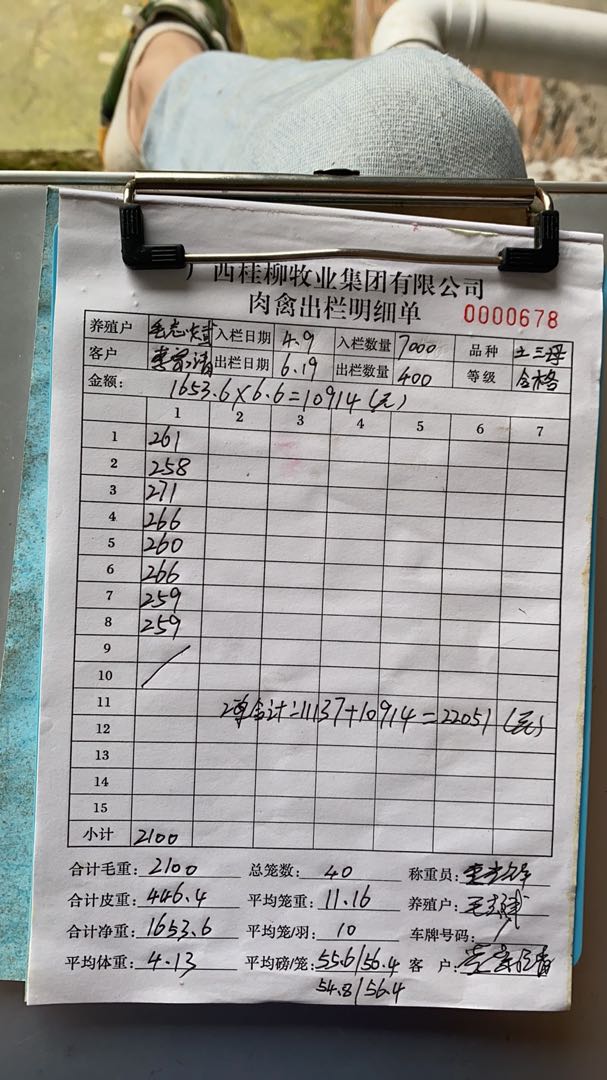 广西桂柳牧业集团有限公司
肉禽出栏明细单 0000678
养殖户 入栏日期 4.9 入栏数量 7000 品种 土三母
客户 出栏日期 6.19 出栏数量 400 等级 合格
金额: 1653.6×6.6=10914(元)
1 2 3 4 5 6 7
1 261
2 258
3 271
4 266
5 260
6 266
7 259
8 259
9
10
11 2单合计:11137+10914=22051(元)
12
13
14
15
小计 2100
合计毛重: 2100 总笼数: 40 称重员:
合计皮重: 446.4 平均笼重: 11.16 养殖户:
合计净重: 1653.6 平均笼/羽: 10 车牌号码:
平均体重: 4.13 平均磅/笼: 55.6/56.4 客 户:
54.8/56.4